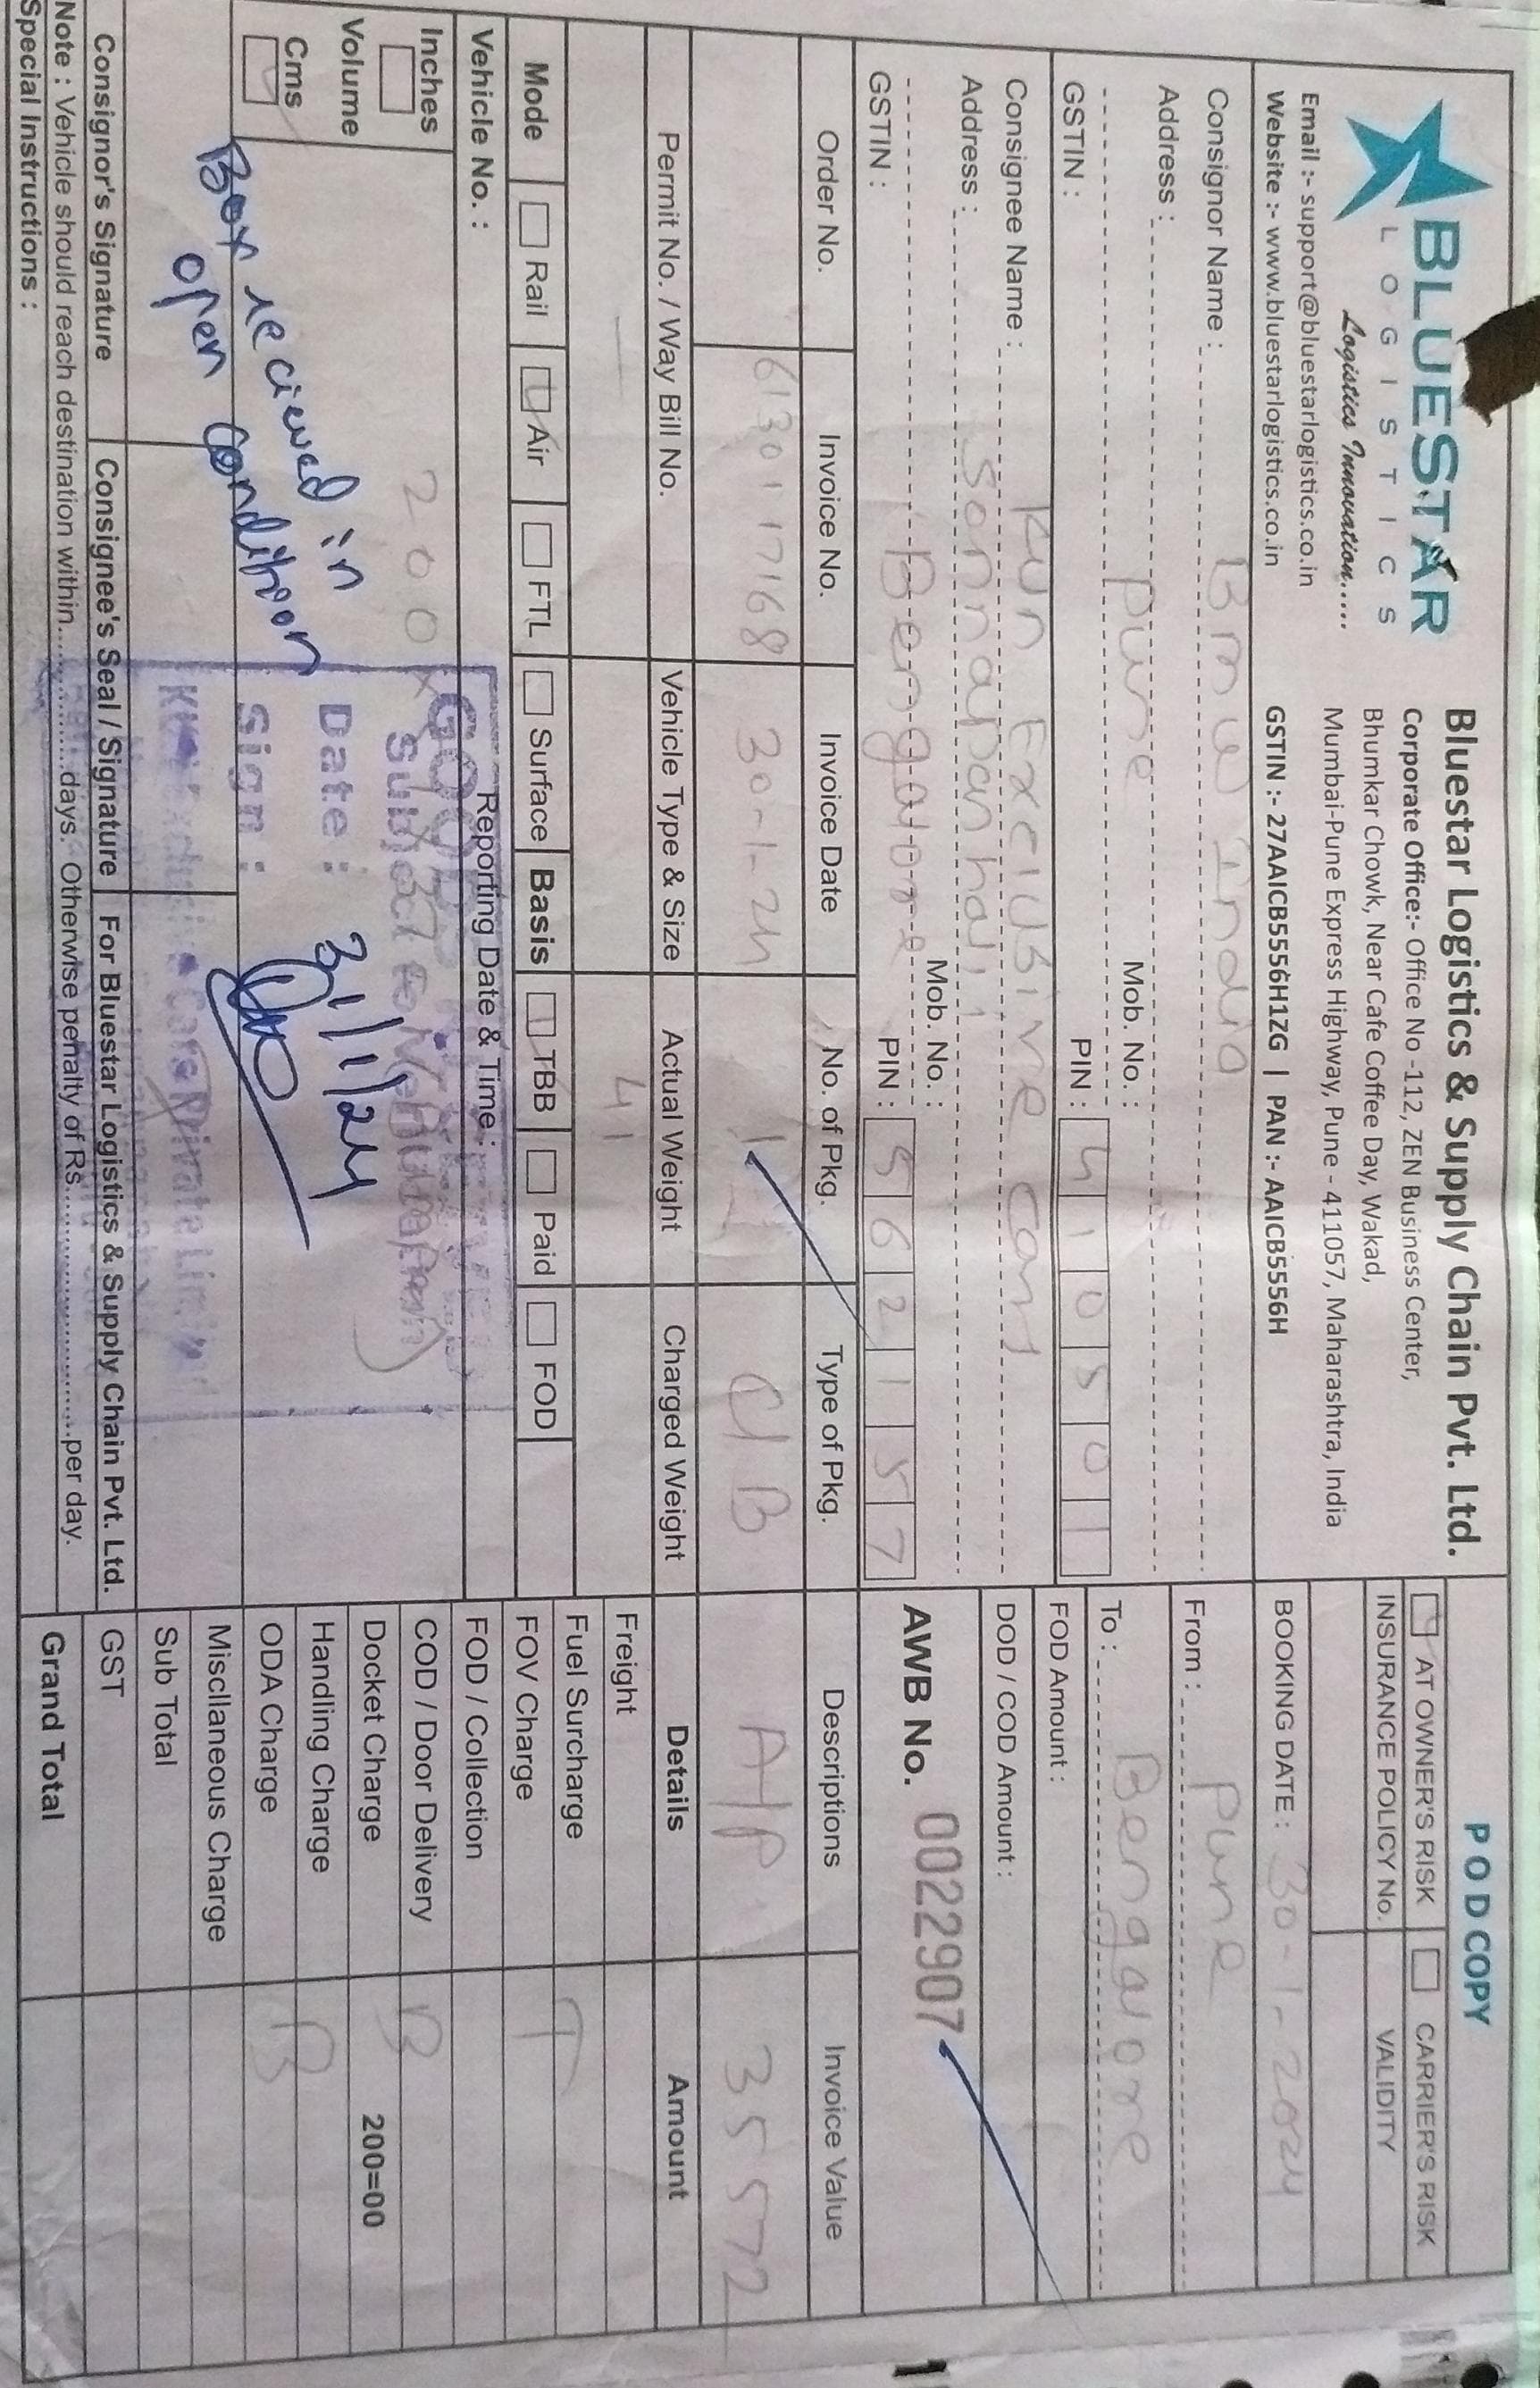 BLUESTAR
LOGISTICS
Logistics Innovation.....
Email :- support@bluestarlogistics.co.in
Website :- www.bluestarlogistics.co.in
Bluestar Logistics & Supply Chain Pvt. Ltd.
Corporate Office:- Office No -112, ZEN Business Center,
Bhumkar Chowk, Near Cafe Coffee Day, Wakad,
Mumbai-Pune Express Highway, Pune - 411057, Maharashtra, India
GSTIN :- 27AAICB5556H1ZG | PAN :- AAICB5556H
POD COPY
AT OWNER'S RISK CARRIER'S RISK
INSURANCE POLICY No. VALIDITY
BOOKING DATE : 30-1-2024
Consignor Name : BMW India
Address :
Pune Mob. No. :
GSTIN : PIN : 410501
From : Pune
To : Bengalore
Consignee Name : KUN Exclusive Cars
Address : Sonnapanhalli
Bengalore Mob. No. :
GSTIN : PIN : 562157
FOD Amount :
DOD / COD Amount :
AWB No. 0022907
Order No. Invoice No. Invoice Date No. of Pkg. Type of Pkg. Descriptions Invoice Value
6130117168 30-1-24 1 C/B A/P 35572
Permit No. / Way Bill No. Vehicle Type & Size Actual Weight Charged Weight Details Amount
— 41
Mode Rail Air FTL Surface Basis TBB Paid FOD
Vehicle No. : Reporting Date & Time :
Freight
Fuel Surcharge
T
FOV Charge
FOD / Collection
COD / Door Delivery
B
Docket Charge 200=00
Handling Charge
B
ODA Charge
Miscllaneous Charge
Sub Total
GST
Grand Total
Inches
Volume
Cms
GOODS RECEIVED
Subject to
Date : 31/1/24
Sign :
KUN Exclusive Cars Private Limited
Box recieved in
open condition
Consignor's Signature Consignee's Seal / Signature For Bluestar Logistics & Supply Chain Pvt. Ltd.
Note : Vehicle should reach destination within................days. Otherwise penalty of Rs............................per day.
Special Instructions :